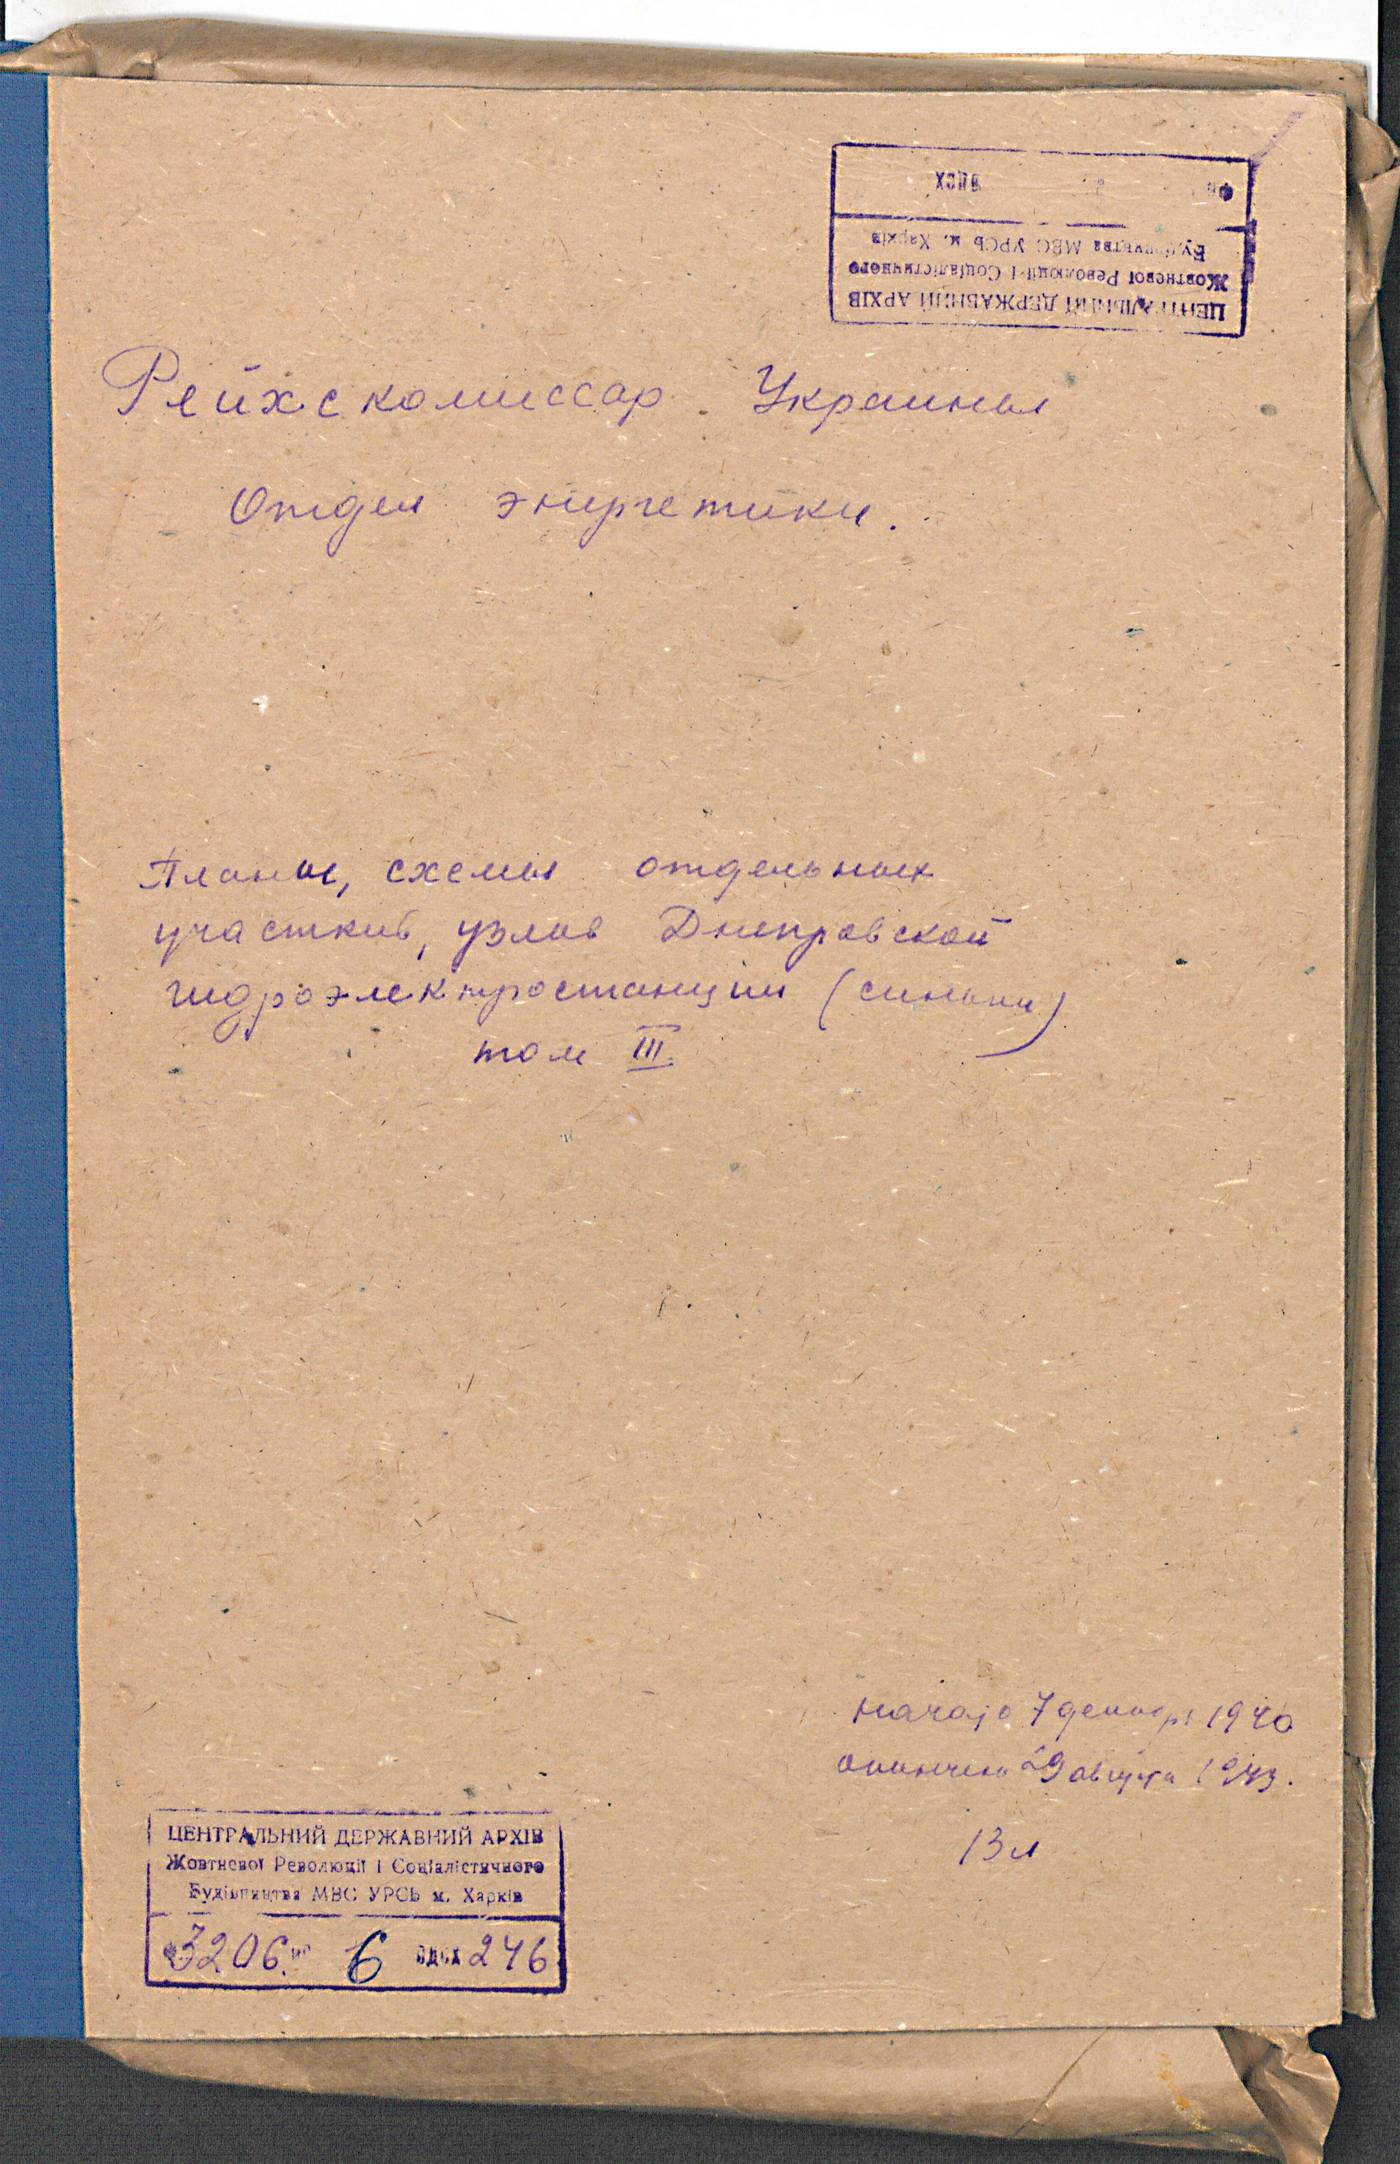 Фп 3 ЭДСХ
ЦЕНТРАЛЬНИЙ ДЕРЖАВНИЙ АРХІВ
Жовтневої Революції і Соціалістичного
Будівництва МВС УРСЬ м. Харків
Рейхскомиссар Украины
Отдел энергетики.
Планы, схемы отдельных
участков, узлов Днепровской
гидроэлектростанции (синьки)
том III
начало 7 декабр 1940
окончено 29 августа 1943.
13 л
ЦЕНТРАЛЬНИЙ ДЕРЖАВНИЙ АРХІВ
Жовтневої Революції і Соціалістичного
Будівництва МВС УРСЬ м. Харків
3206 6 246